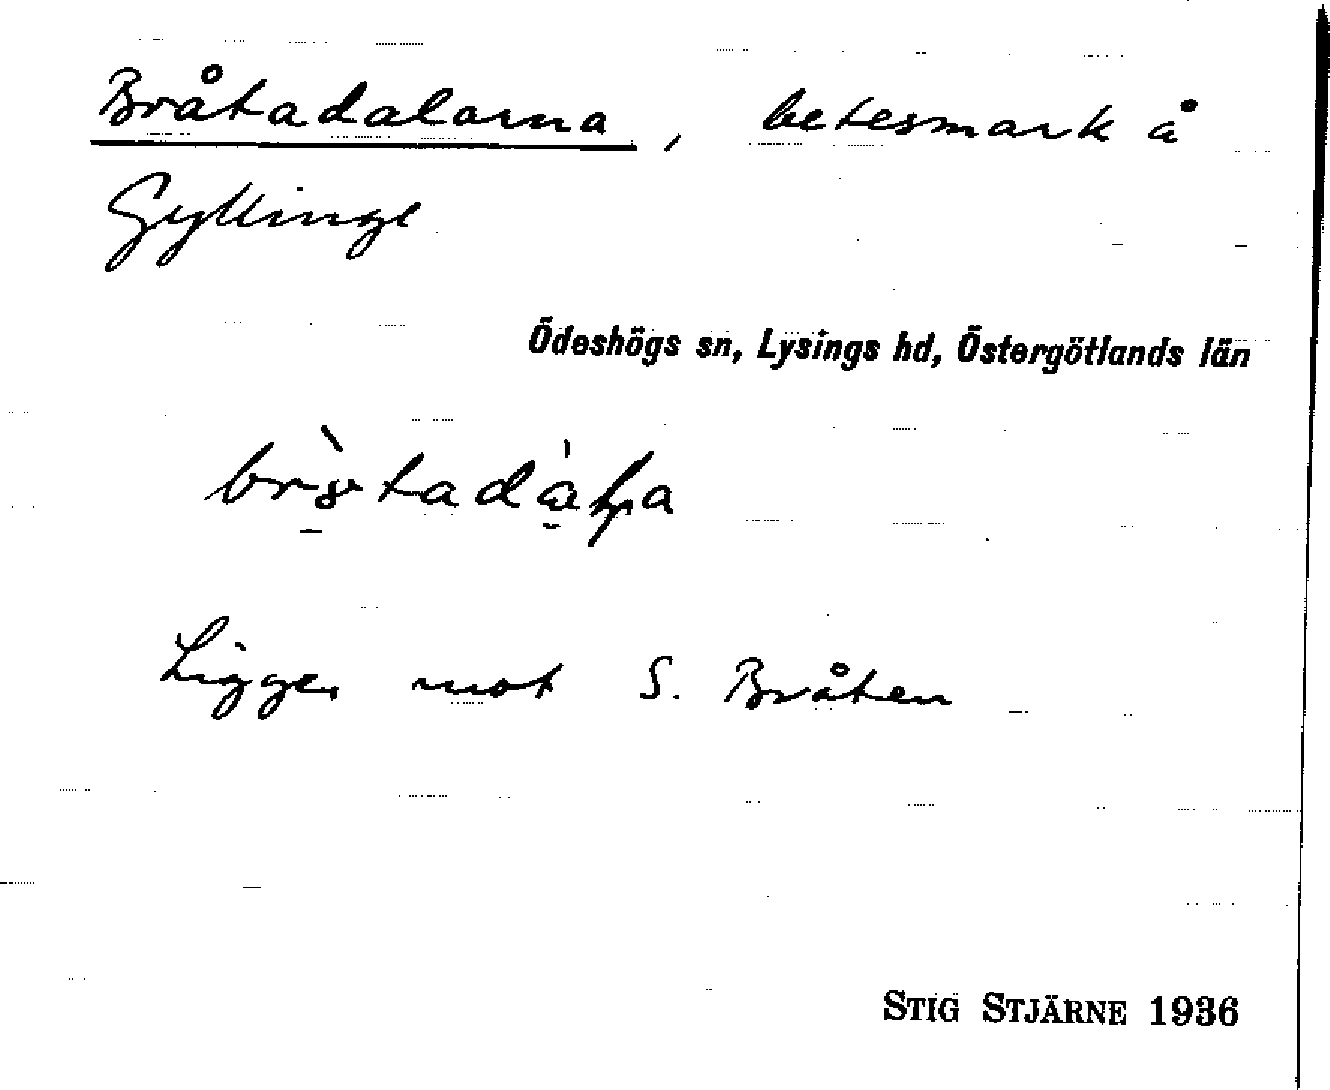 Bråtadalarna, betesmark å
Gyllinge
Ödeshögs sn, Lysings hd, Östergötlands län
Ligger mot S. Bråten
STIG STJÄRNE 1936